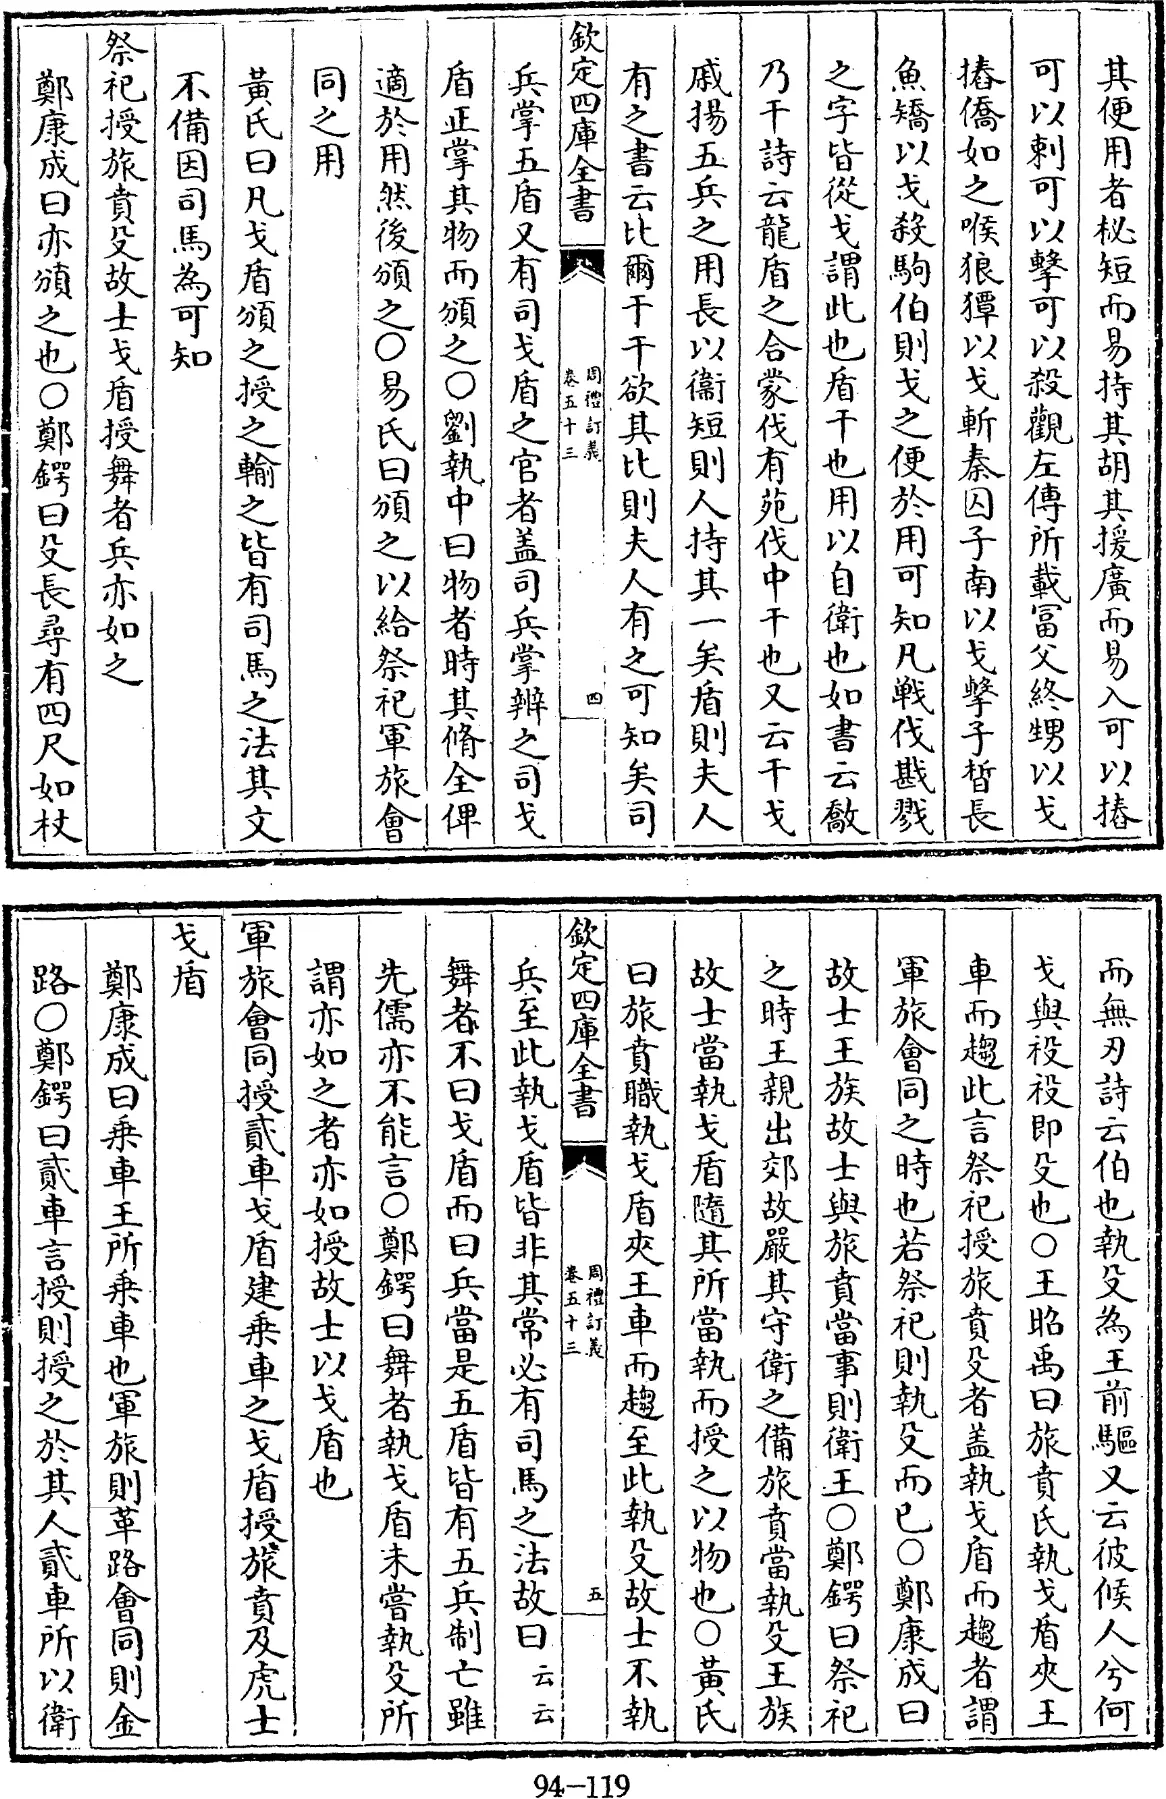 其便用者柲短而易持其胡其援廣而易入可以摏
可以刺可以擊可以殺觀左傳所載冨父終甥以戈
摏僑如之喉狼獐以戈斬秦囚子南以戈擊子晳長
魚矯以戈殺駒伯則戈之便於用可知凡戰伐戡戮
之字皆從戈謂此也盾干也用以自衛也如書云敿
乃干詩云龍盾之合蒙伐有苑伐中干也又云干戈
戚揚五兵之用長以衞短則人持其一矣盾則夫人
有之書云比爾干干欲其比則夫人有之可知矣司
欽定四庫全書
周禮訂義
卷五十三
四
兵掌五盾又有司戈盾之官者盖司兵掌辨之司戈
盾正掌其物而頒之〇劉執中曰物者時其脩全俾
適於用然後頒之〇易氏曰頒之以給祭祀軍旅會
同之用
黃氏曰凡戈盾頒之授之輸之皆有司馬之法其文
不備因司馬為可知
祭祀授旅賁殳故士戈盾授舞者兵亦如之
鄭康成曰亦頒之也〇鄭鍔曰殳長尋有四尺如杖
而無刃詩云伯也執殳為王前驅又云彼候人兮何
戈與祋祋即殳也〇王昭禹曰旅賁氏執戈盾夾王
車而趨此言祭祀授旅賁殳者盖執戈盾而趨者謂
軍旅會同之時也若祭祀則執殳而已〇鄭康成曰
故士王族故士與旅賁當事則衛王〇鄭鍔曰祭祀
之時王親出郊故嚴其守衛之備旅賁當執殳王族
故士當執戈盾隨其所當執而授之以物也〇黃氏
曰旅賁職執戈盾夾王車而趨至此執殳故士不執
欽定四庫全書
周禮訂義
卷五十三
五
兵至此執戈盾皆非其常必有司馬之法故曰云云
舞者不曰戈盾而曰兵當是五盾皆有五兵制亡雖
先儒亦不能言〇鄭鍔曰舞者執戈盾未嘗執殳所
謂亦如之者亦如授故士以戈盾也
軍旅會同授貳車戈盾建乗車之戈盾授旅賁及虎士
戈盾
鄭康成曰乗車王所乗車也軍旅則革路會同則金
路〇鄭鍔曰貳車言授則授之於其人貳車所以衛
94-119